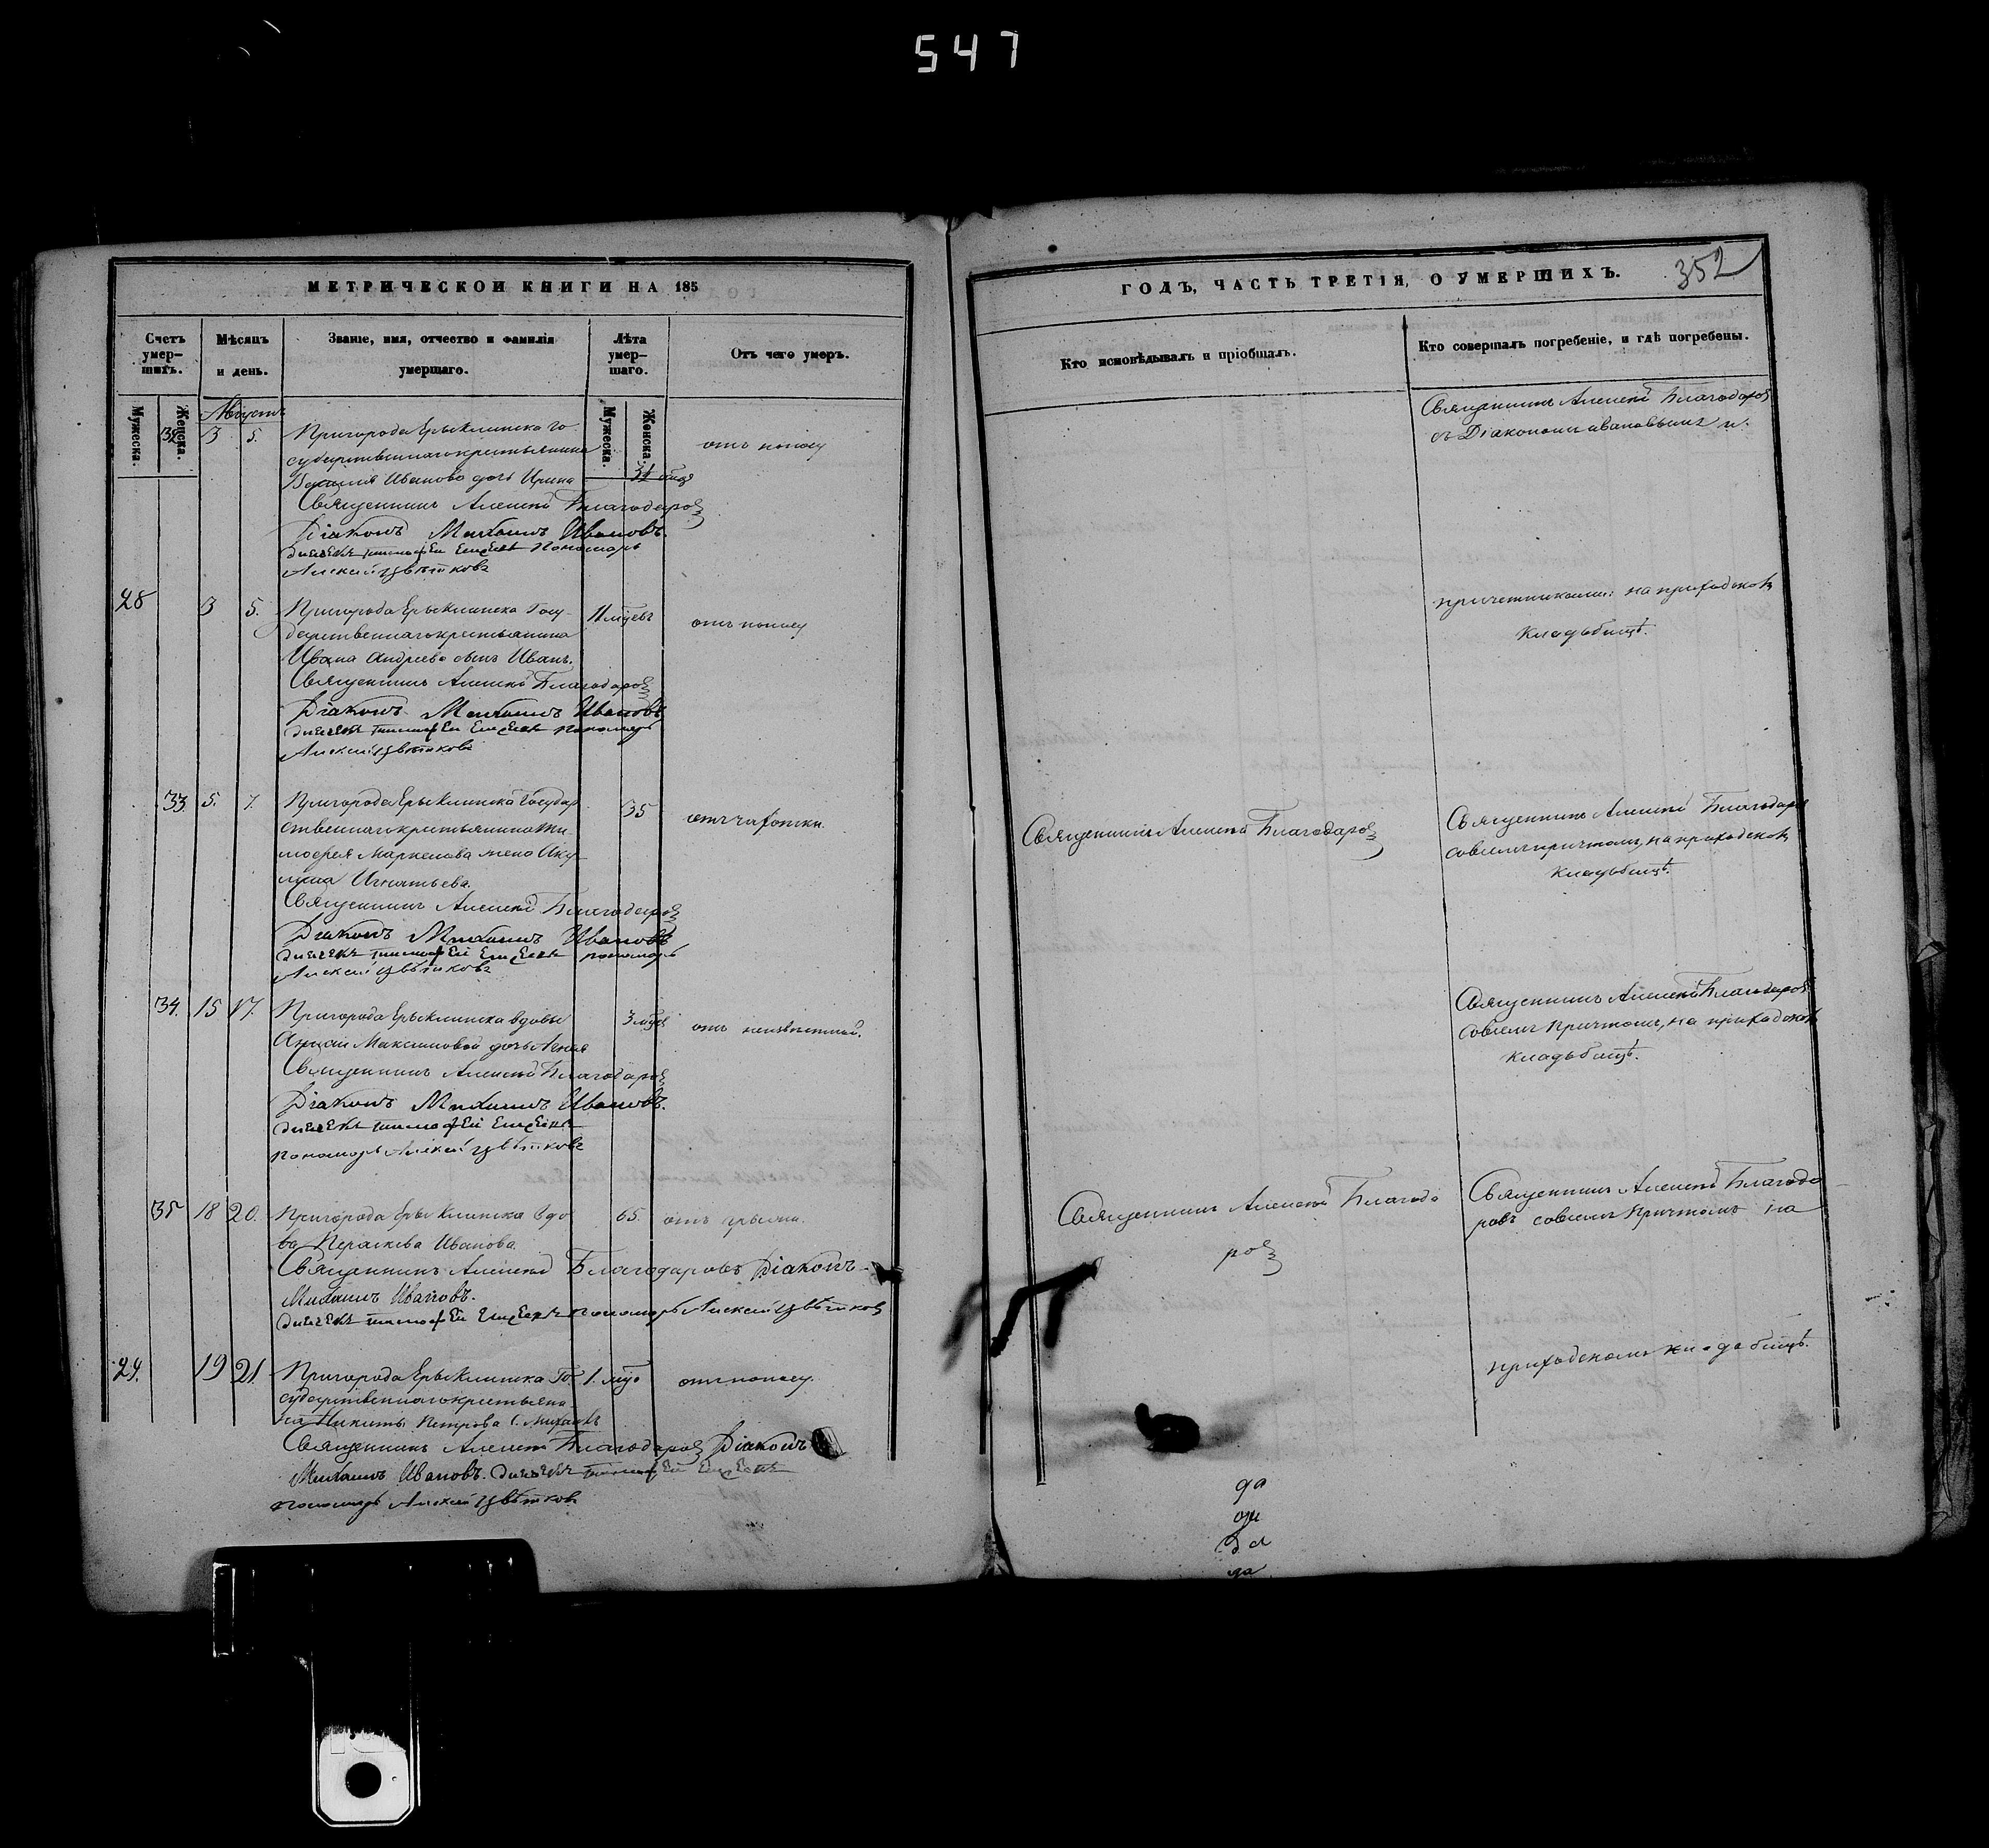 547
МЕТРИЧЕСКОЙ КНИГИ НА 185
Счетъ умер-шихъ.
Мѣсяцъ и день.
Званіе, имя, отчество и фамилія умершаго.
Лѣта умер-шаго.
Отъ чего умеръ.
Мужеска.
Женска.
Мужеска.
Женска.
Августъ
32 3 5. Пригорода Ерыклинска го-
сударственнаго крестьянина
Василія Иванова дочь Ирина
отъ поносу
Священникъ Алексѣй Благодаровъ
Діаконъ Михаилъ Ивановъ.
Пономарь
Алексѣй Цвѣтковъ
28 3 5. Пригорода Ерыклинска Госу-
дарственнаго крестьянина
Ивана Андреева сынъ Иванъ.
11 мцевъ
отъ поносу
Священникъ Алексѣй Благодаровъ
Діаконъ Михаилъ Ивановъ
пономарь
Алексѣй Цвѣтковъ
33 5. 7. Пригорода Ерыклинска Государ
ственнаго крестьянина Ти
мофея Маркелова жена Аку
лина Игнатьева.
35
отъ чахотки.
Священникъ Алексѣй Благодаровъ
Діаконъ Михаилъ Ивановъ
пономарь
Алексѣй Цвѣтковъ
34. 15 17. Пригорода Ерыклинска вдовы
Максимовой дочь
3 мцев
отъ неизвѣстной.
Священникъ Алексѣй Благодаровъ
Діаконъ Михаилъ Ивановъ.
пономарь Алексѣй Цвѣтковъ
35 18 20. Пригорода Ерыклинска вдо
ва Параскева Иванова.
65.
отъ грыжи.
Священникъ Алексѣй Благодаровъ Діаконъ
Михаилъ Ивановъ.
пономарь Алексѣй Цвѣтковъ
29. 19 21. Пригорода Ерыклинска Го
сударственнаго крестьяни
на Никиты Петрова с. Михаилъ
1. мцо
отъ поносу.
Священникъ Алексѣй Благодаровъ Діаконъ
Михаилъ Ивановъ.
пономарь Алексѣй Цвѣтковъ
ГОДЪ, ЧАСТЬ ТРЕТІЯ, О УМЕРШИХЪ.
352
Кто исповѣдывалъ и пріобщалъ.
Кто совершалъ погребеніе, и гдѣ погребены.
Священникъ Алексѣй Благодаровъ
съ Діакономъ Ивановымъ и
причетниками: на приходскомъ
кладбищѣ.
Священникъ Алексѣй Благодаровъ
Священникъ Алексѣй Благодаровъ
со всѣмъ причтомъ, на приходскомъ
кладбищѣ.
Священникъ Алексѣй Благодаровъ
со всѣмъ причтомъ, на приходскомъ
кладбищѣ.
Священникъ Алексѣй Благода
ровъ
Священникъ Алексѣй Благода-
ровъ со всѣмъ причтомъ на
приходскомъ кладбищѣ.
да
да